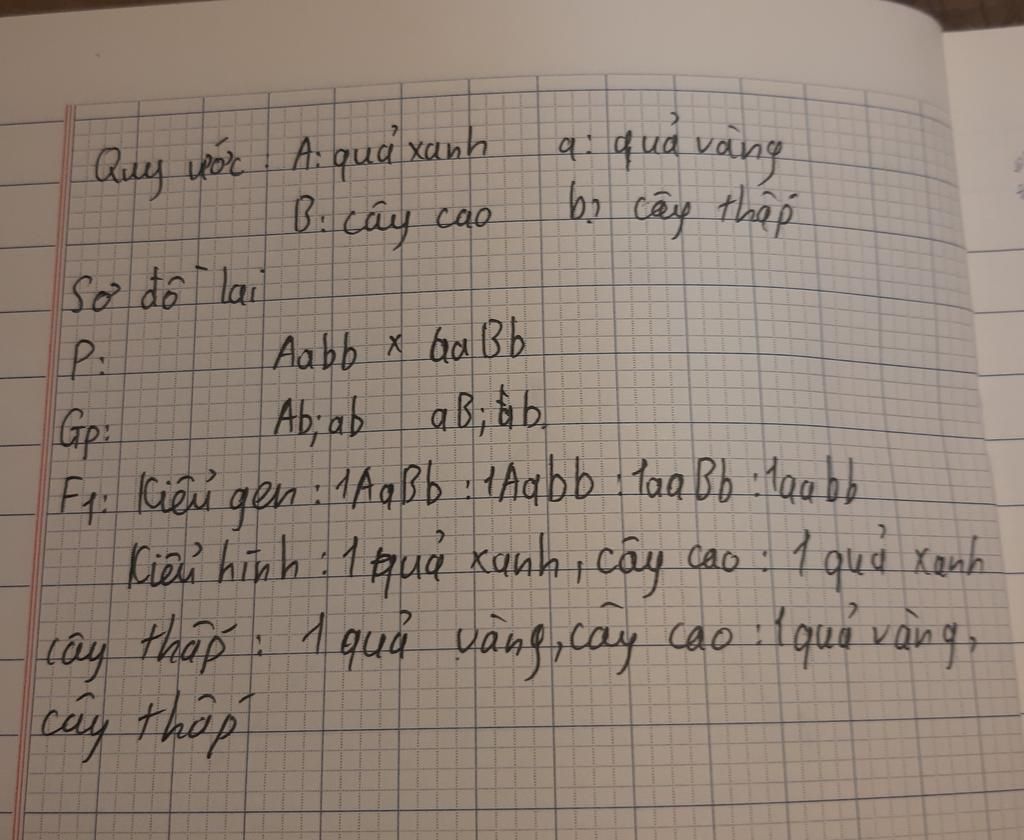 Quy ước: A: quả xanh a: quả vàng
B: cây cao b: cây thấp
Sơ đồ lai
P: Aabb x aaBb
Gp: Ab; ab aB; ab
F1: Kiểu gen: 1AaBb : 1Aabb : 1aaBb : 1aabb
Kiểu hình: 1 quả xanh, cây cao : 1 quả xanh
cây thấp : 1 quả vàng, cây cao : 1 quả vàng,
cây thấp